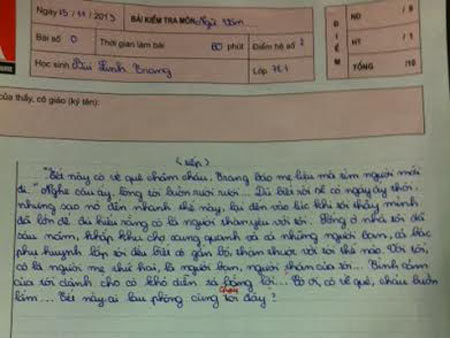 Ngày 15/11/2013 BÀI KIỂM TRA MÔN: Ngữ Văn
Bài số 0 Thời gian làm bài 80 phút Điểm hệ số 2
Học sinh Linh Trang Lớp 7E1
ĐIỂM
ND /9
HT /1
TỔNG /10
của thầy, cô giáo (ký tên):
(tiếp)
"Tết này cô về quê chăm cháu, Trang bảo mẹ liệu mà tìm người mới
đi." Nghe câu ấy, lòng tôi buồn rười rượi... Dù biết rồi sẽ có ngày ấy thôi,
nhưng sao nó đến nhanh thế này, lại đến vào lúc khi tôi thấy mình
đã lớn để đủ hiểu rằng cô là người thân yêu với tôi. Sống ở nhà tôi đã
sáu năm, khắp khu chung quanh và cả những người bạn, cả bác
phụ huynh lớp tôi đều biết cô gắn bó, thân thuộc với tôi thế nào. Với tôi,
cô là người mẹ thứ hai, là người bạn, người thân của tôi... Tình cảm
của tôi dành cho cô khó diễn tả bằng lời... Cô ơi, cô về quê, cháu buồn
lắm... Tết này ai lau phòng cùng tôi đây?
cháu